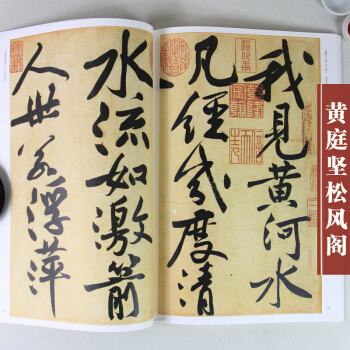 我见黄河水
凡经几度清
水流如激箭
人世若浮萍
黄庭坚松风阁